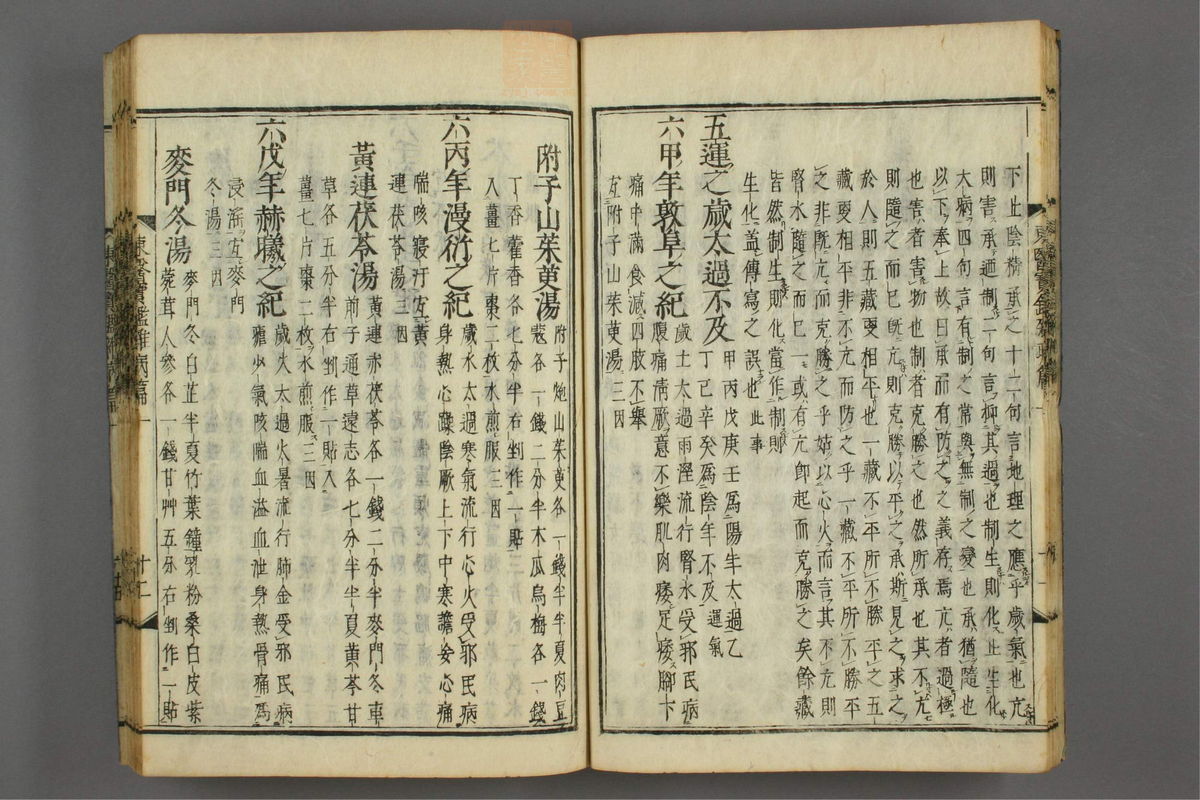 下止陰精承之十二句言地理之應乎歲氣也亢
則害承迺制一句言抑其過也制生則化止生化
大病四句言有制之常與無制之變也承猶隨也
以下奉上故曰承而有防之之義存焉亢者過極
也害者害物也制者克勝之也然所承也其不亢
則隨之而已旣亢則克勝以平之承斯見之求之
於人則五藏更相平也一藏不平所不勝平之五
藏更相平非不亢而防之乎一藏不平所不勝平
之非旣亢而克勝之乎姑以心火而言其不亢則
腎水隨之而已一或有亢卽起而克勝之矣餘藏
皆然制生則化當作制則
生化盖傳寫之誤也此事
五運之歲太過不及
甲丙戊庚壬爲陽年太過乙
丁己辛癸爲陰年不及運氣
六甲年敦阜之紀
歲土太過雨溼流行腎水受邪民病
腹痛淸厥意不樂肌肉痿足痿腳下
痛中滿食減四肢不擧
宜附子山茱萸湯三因
附子山茱萸湯
附子炮山茱萸各一錢半半夏肉豆
蔻各一錢二分半木瓜烏梅各一錢
丁香藿香各七分半右剉作一貼
入薑七片棗二枚水煎服三因
六丙年漫衍之紀
歲水太過寒氣流行心火受邪民病
身熱心躁陰厥上下中寒譫妄心痛
喘咳寢汗宜黃
連茯苓湯三因
黃連茯苓湯
黃連赤茯苓各一錢二分半麥門冬車
前子通草遠志各七分半半夏黃芩甘
草各五分半右剉作一貼入
薑七片棗二枚水煎服三因
六戊年赫曦之紀
歲火太過火暑流行肺金受邪民病
瘧少氣咳喘血溢血泄身熱骨痛爲
浸淫宜麥門
冬湯三因
麥門冬湯
麥門冬白芷半夏竹葉鐘乳粉桑白皮紫
菀茸人參各一錢甘艸五分右剉作一貼
東醫寶鑑雜病篇